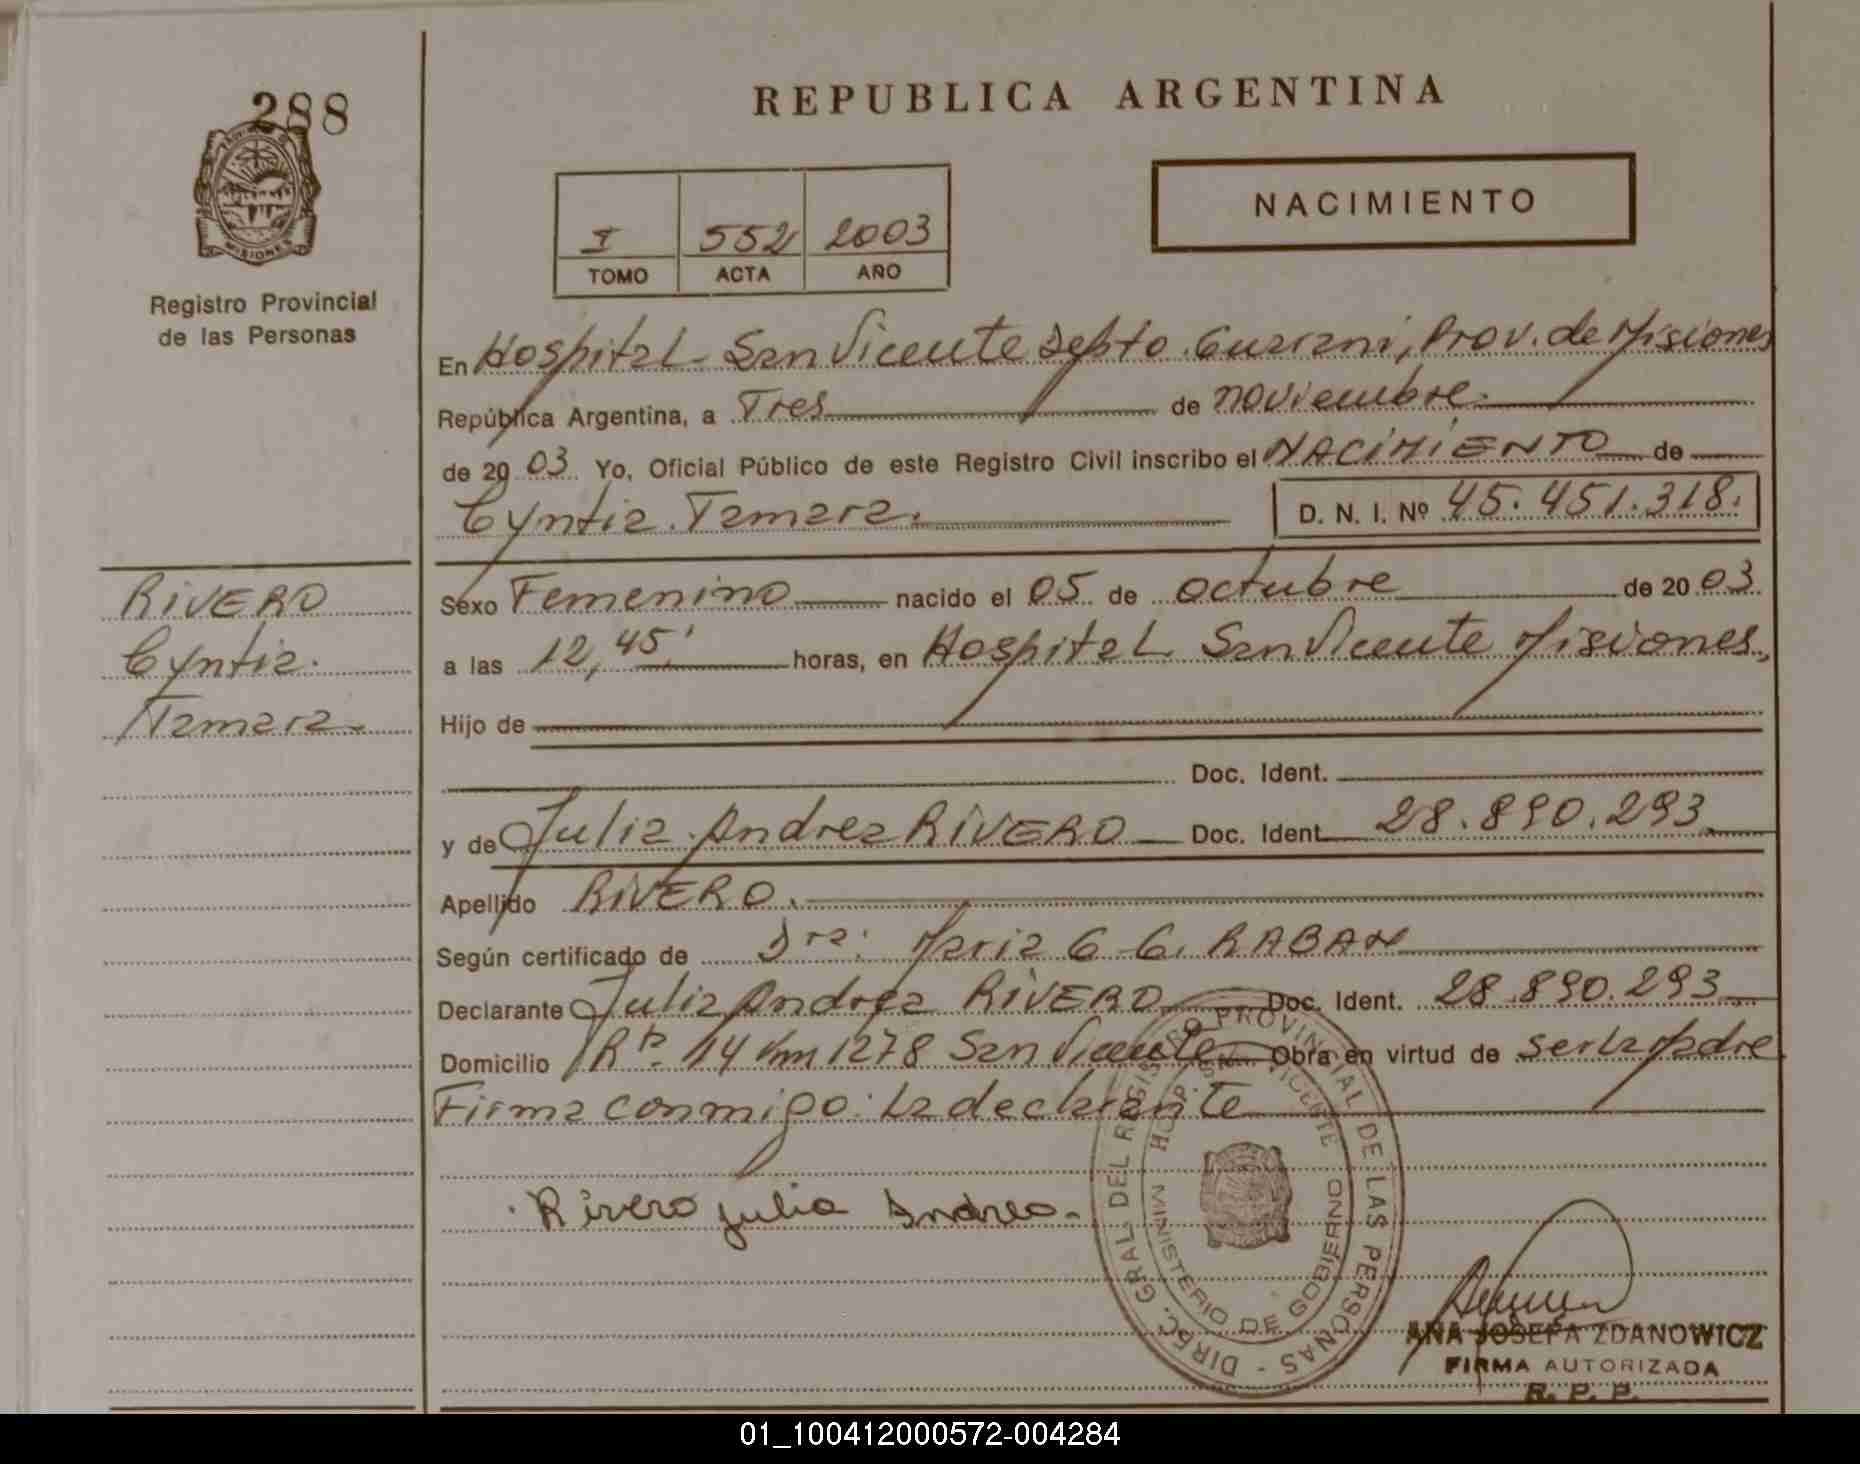 288
PROVINCIA DE
MISIONES
Registro Provincial
de las Personas
REPUBLICA ARGENTINA
I 552 2003
TOMO ACTA AÑO
NACIMIENTO
En Hospital - San Vicente Depto. Guarani, Prov. de Misiones
República Argentina, a Tres de noviembre.
de 20 03 Yo, Oficial Público de este Registro Civil inscribo el NACIMIENTO de
Cyntia. Tamara. D. N. I. Nº 45.451.318.
RIVERO
Cyntia.
Tamara.
Sexo Femenino nacido el 05 de octubre de 20 03
a las 12,45' horas, en Hospital San Vicente Misiones,
Hijo de
Doc. Ident.
y de Julia Andrea RIVERO Doc. Ident. 28.890.293
Apellido RIVERO.
Según certificado de Dra: Maria G. G. RABAN
Declarante Julia Andrea RIVERO Doc. Ident. 28.890.293
Domicilio Rta. 14 Km 1278 San Vicente Obra en virtud de ser la Madre
Firma conmigo: La declarante
Rivero julia Andrea.
DIREC. GRAL DEL REGISTRO PROVINCIAL DE LAS PERSONAS -
HOSP. SAN VICENTE
MINISTERIO DE GOBIERNO
ANA JOSEFA ZDANOWICZ
FIRMA AUTORIZADA
R. P. P.
01_100412000572-004284